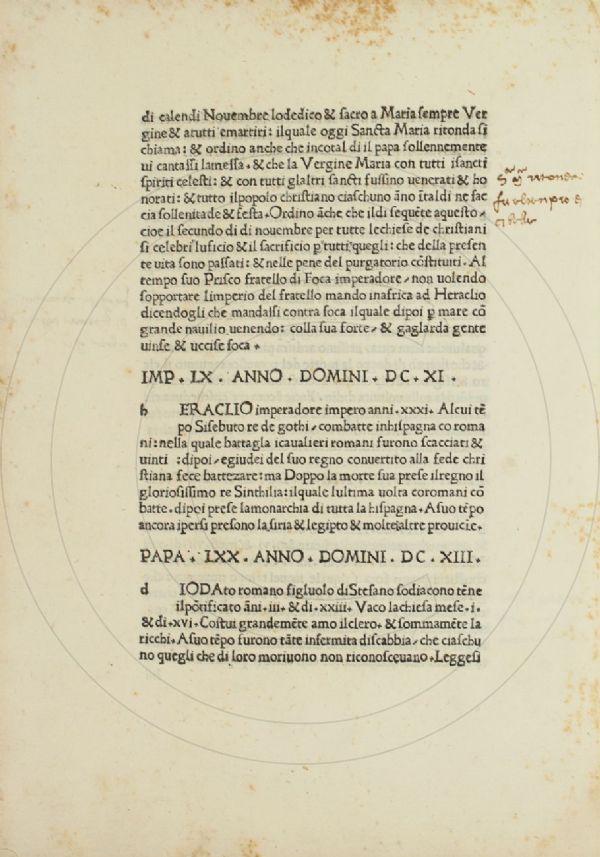 di calendi Nouembre lodedico & sacro a Maria sempre Ver
gine & atutti emartiri: ilquale oggi Sancta Maria ritonda si
chiama: & ordino anche che incotal di il papa sollennemente
ui cantassi lamessa. & che la Vergine Maria con tutti isancti
spiriti celesti: & con tutti glaltri sancti fussino uenerati & ho
norati: & tutto ilpopolo christiano ciaschuno ãno italdi ne fac
cia sollenitade & festa. Ordino ãche che ildi sequẽte aquesto.
cioe il secondo di di nouembre per tutte lechiese de christiani
si celebri lufficio & il sacrificio p tutti quegli: che della presen
te uita sono passati: & nelle pene del purgatorio cõstituiti. Al
tempo suo Prisco fratello di Foca imperadore. non uolendo
sopportare limperio del fratello mando inafrica ad Heraclio
dicendogli che mandassi contra foca ilquale dipoi p mare cõ
grande nauilio uenendo: colla sua forte. & gaglarda gente
uinse & uccise foca.
IMP. LX. ANNO. DOMINI. DC. XI.
h ERACLIO imperadore impero anni. xxxi. Alcui tẽ
po Sisebuto re de gothi. combatte inhispagna co roma
ni: nella quale battagla icaualieri romani furono scacciati &
uinti : dipoi. egiudei del suo regno conuertito alla fede chri
stiana fece battezare: ma Doppo la morte sua prese ilregno il
gloriosissimo re Sinthilia: ilquale lultima uolta coromani cõ
batte. dipoi prese lamonarchia di tutta la hispagna. Asuo tẽpo
ancora ipersi presono la siria & legipto & molte altre prouicie.
PAPA. LXX. ANNO. DOMINI. DC. XIII.
d IODAto romano figluolo di Stefano sodiacono tẽne
ilpõtificato ãni. iii. & di. xxiii. Vaco lachiesa mese. i.
& di. xvi. Costui grandemẽte amo ilclero. & sommamẽte la
ricchi. Asuo tẽpo furono tãte infermita discabbia. che ciaschu
no quegli che di loro moriuono non riconosceuano. Leggesi